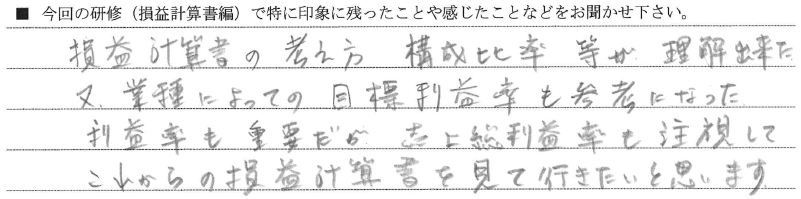 ■ 今回の研修（損益計算書編）で特に印象に残ったことや感じたことなどをお聞かせ下さい。
損益計算書の考え方 構成比率 等が 理解出来た
又、業種によっての目標利益率も参考になった
利益率も重要だが 売上総利益率も注視して
これからの損益計算書を見て行きたいと思います